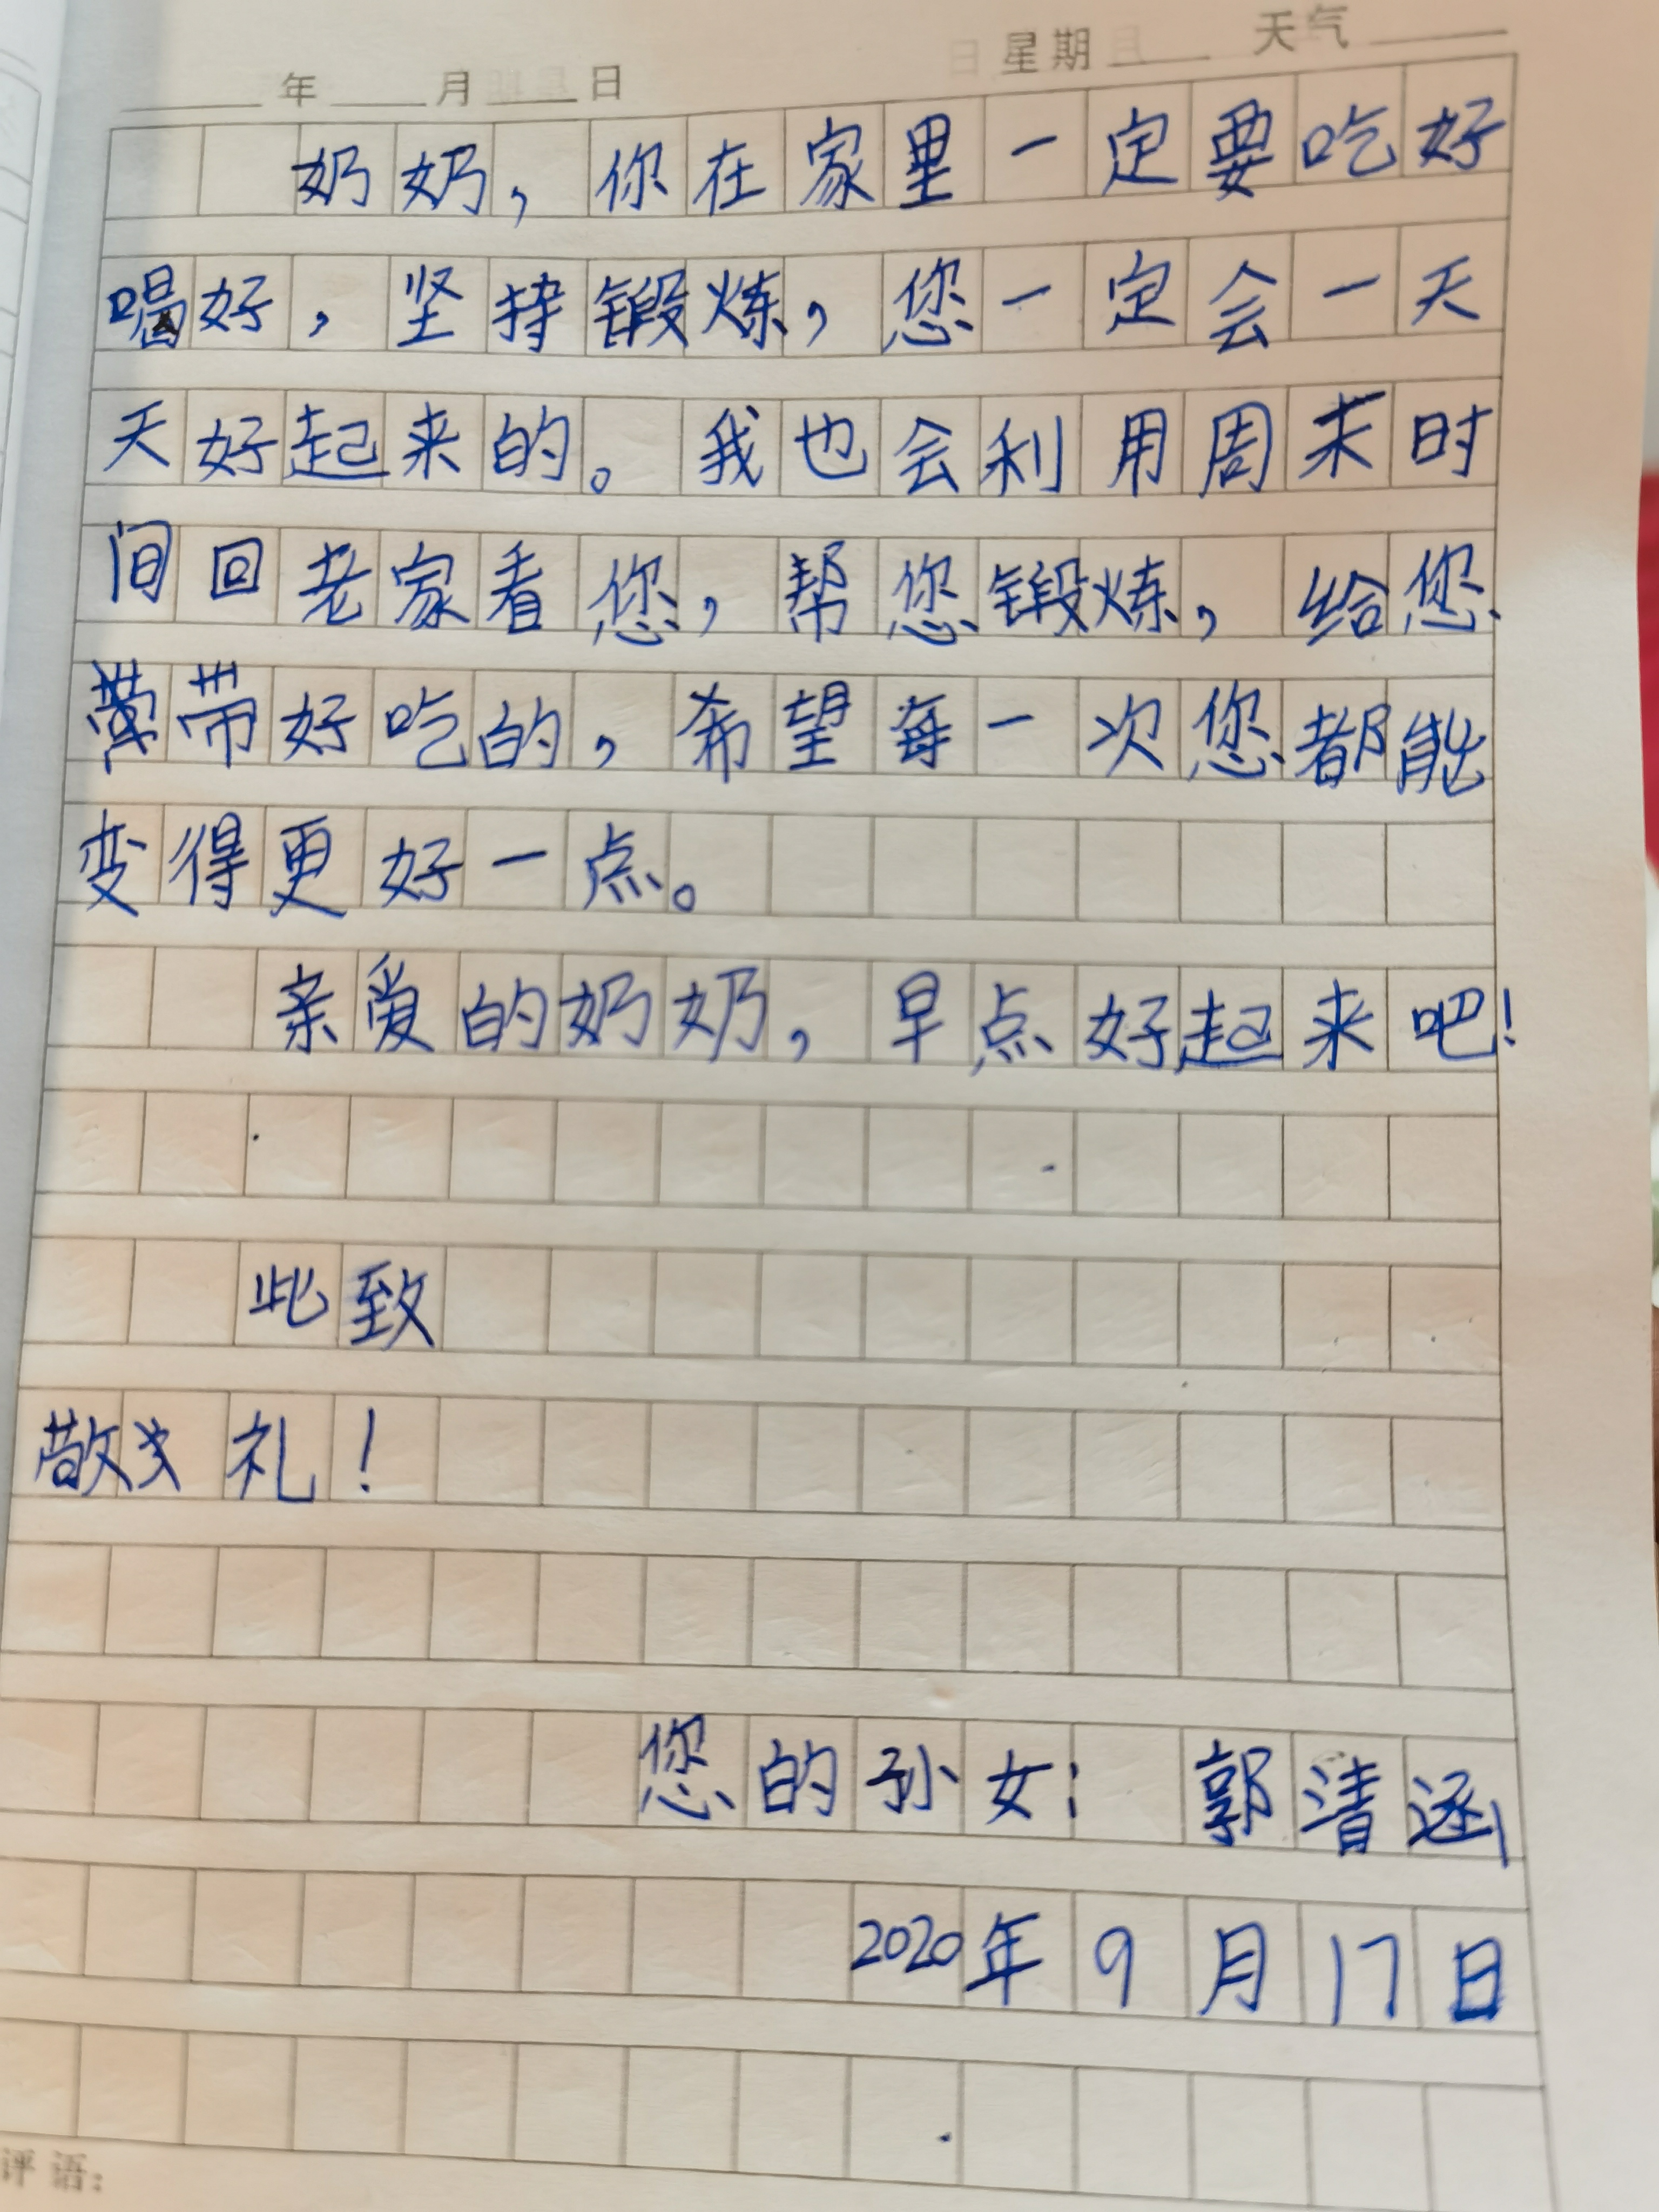 年 月 日 星期 天气
奶奶，你在家里一定要吃好
喝好，坚持锻炼，您一定会一天
天好起来的。我也会利用周末时
间回老家看您，帮您锻炼，给您
带好吃的，希望每一次您都能
变得更好一点。
亲爱的奶奶，早点好起来吧！
此致
敬礼！
您的孙女：郭清涵
2020年9月17日
评语：